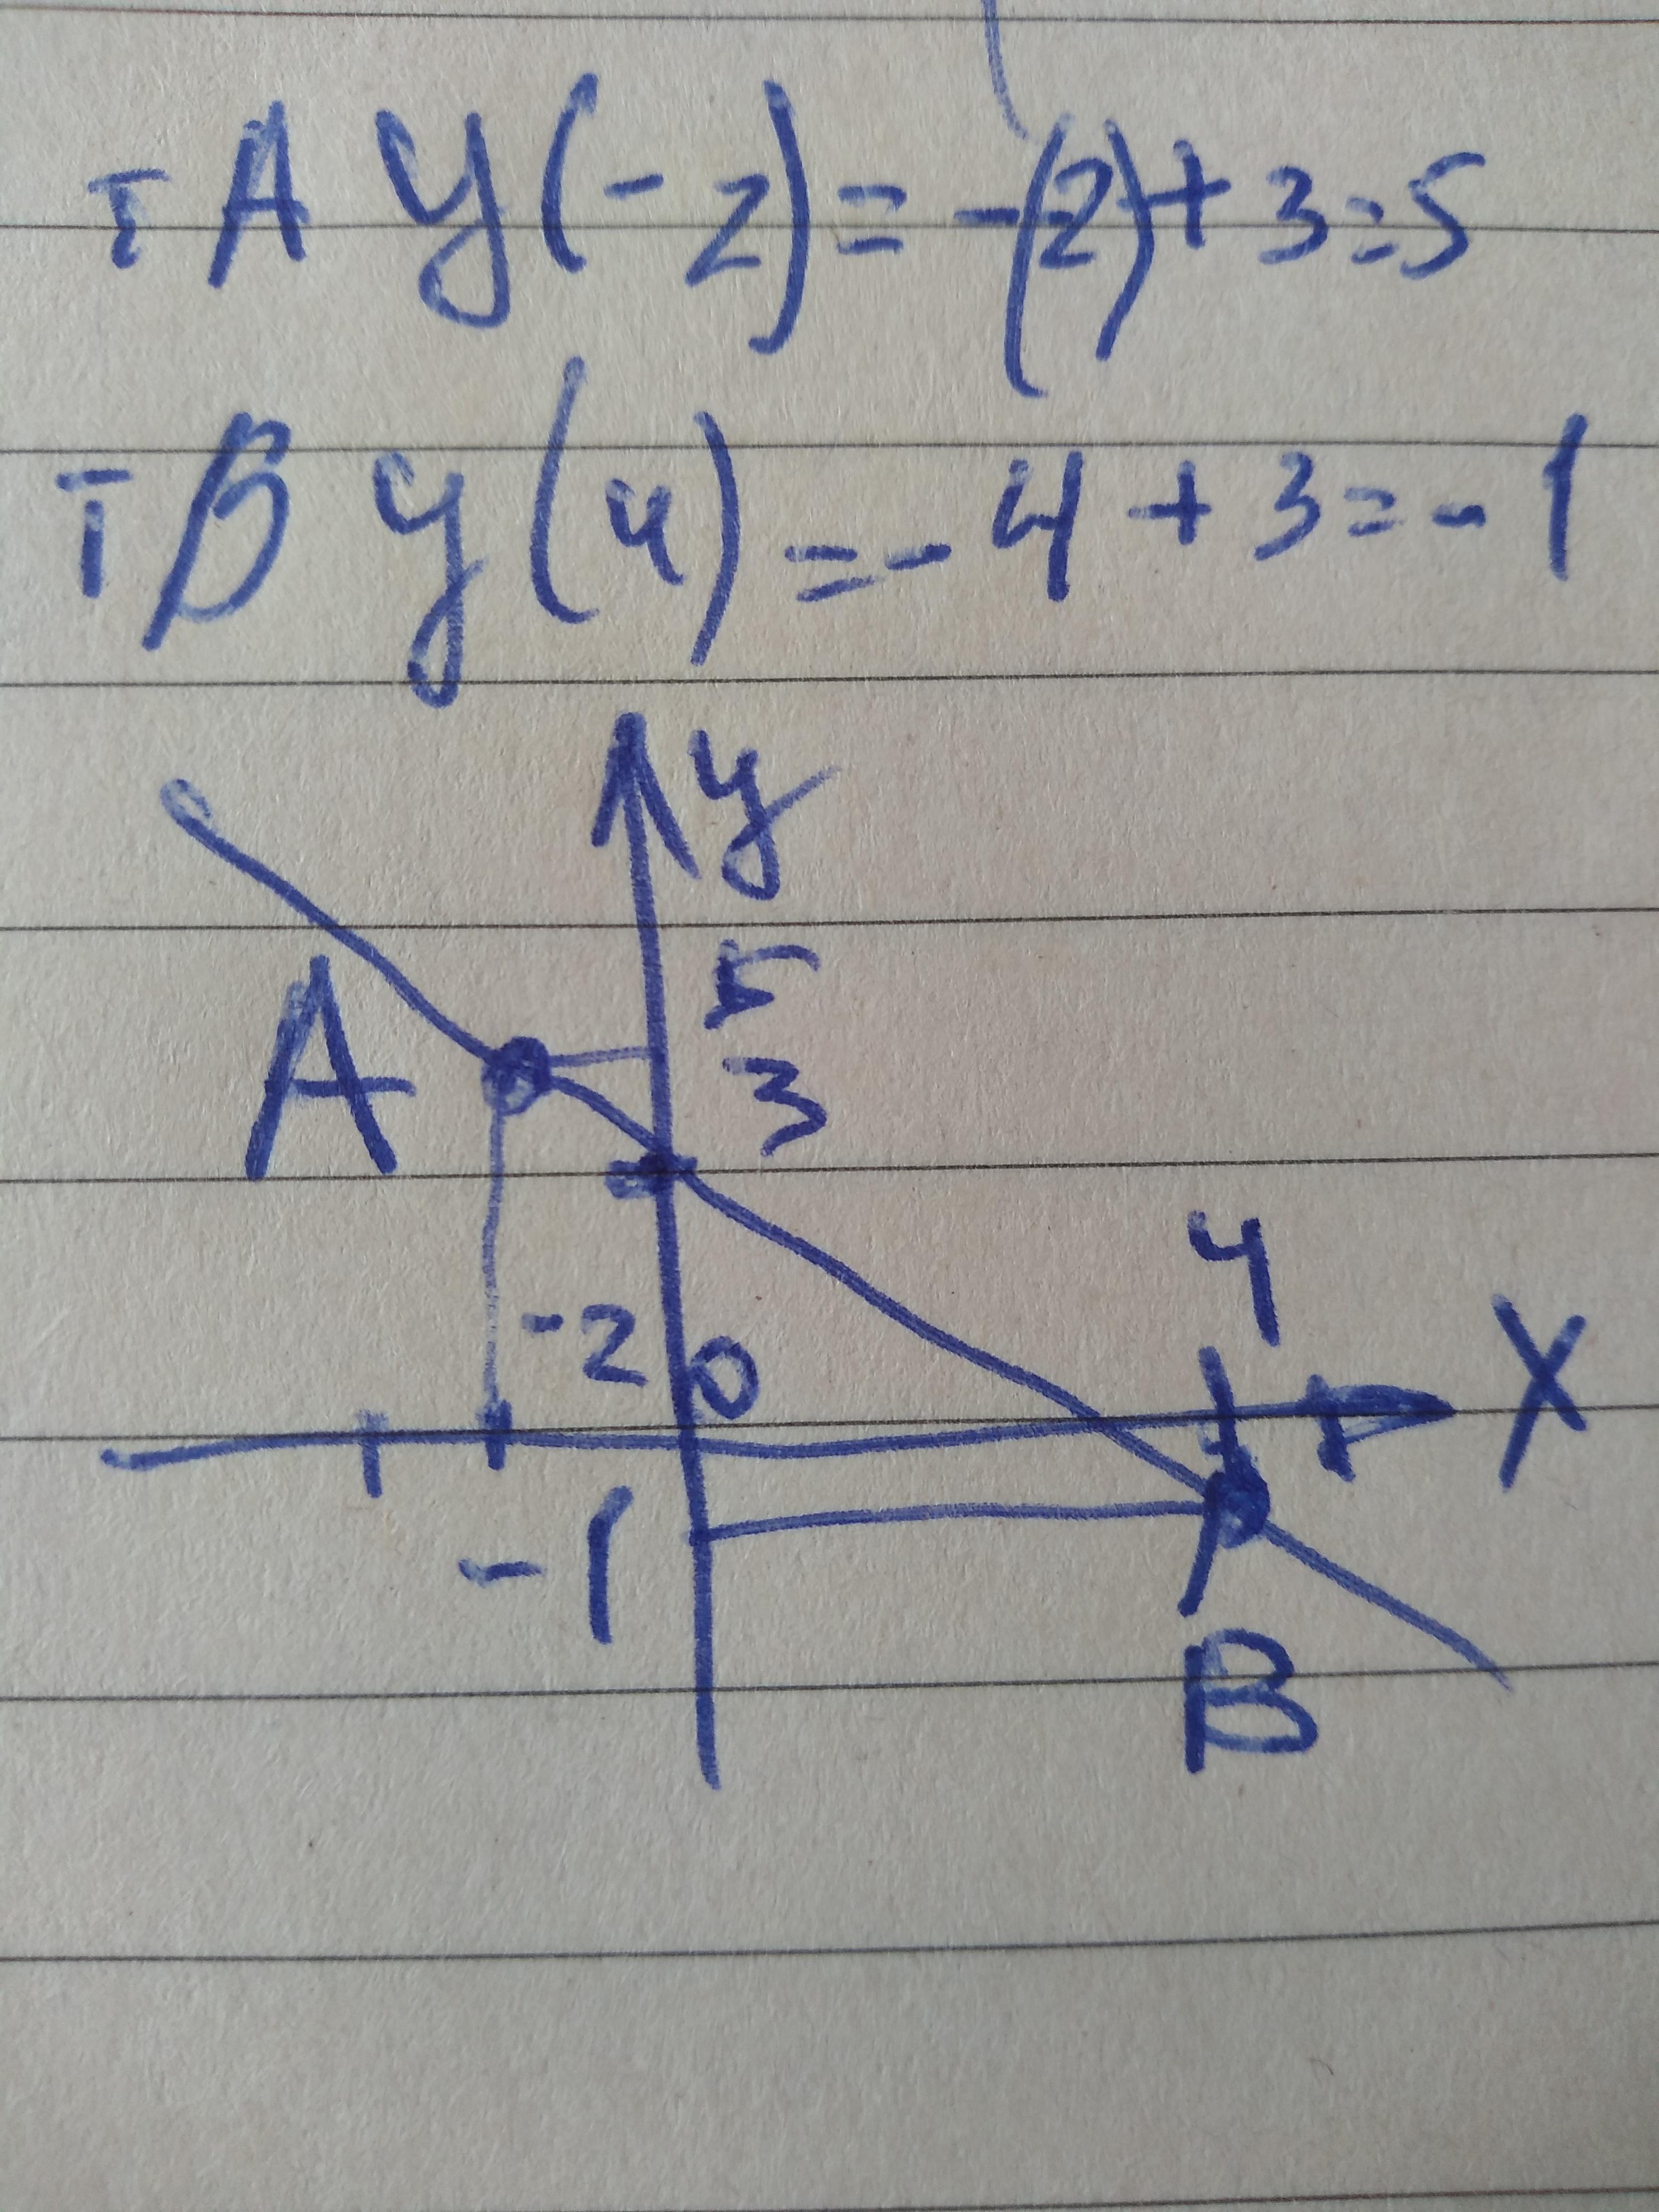 т А y(-2)=-(2)+3=5
т В y(4)=-4+3=-1
y
5
A
3
4
-2
0
X
-1
B